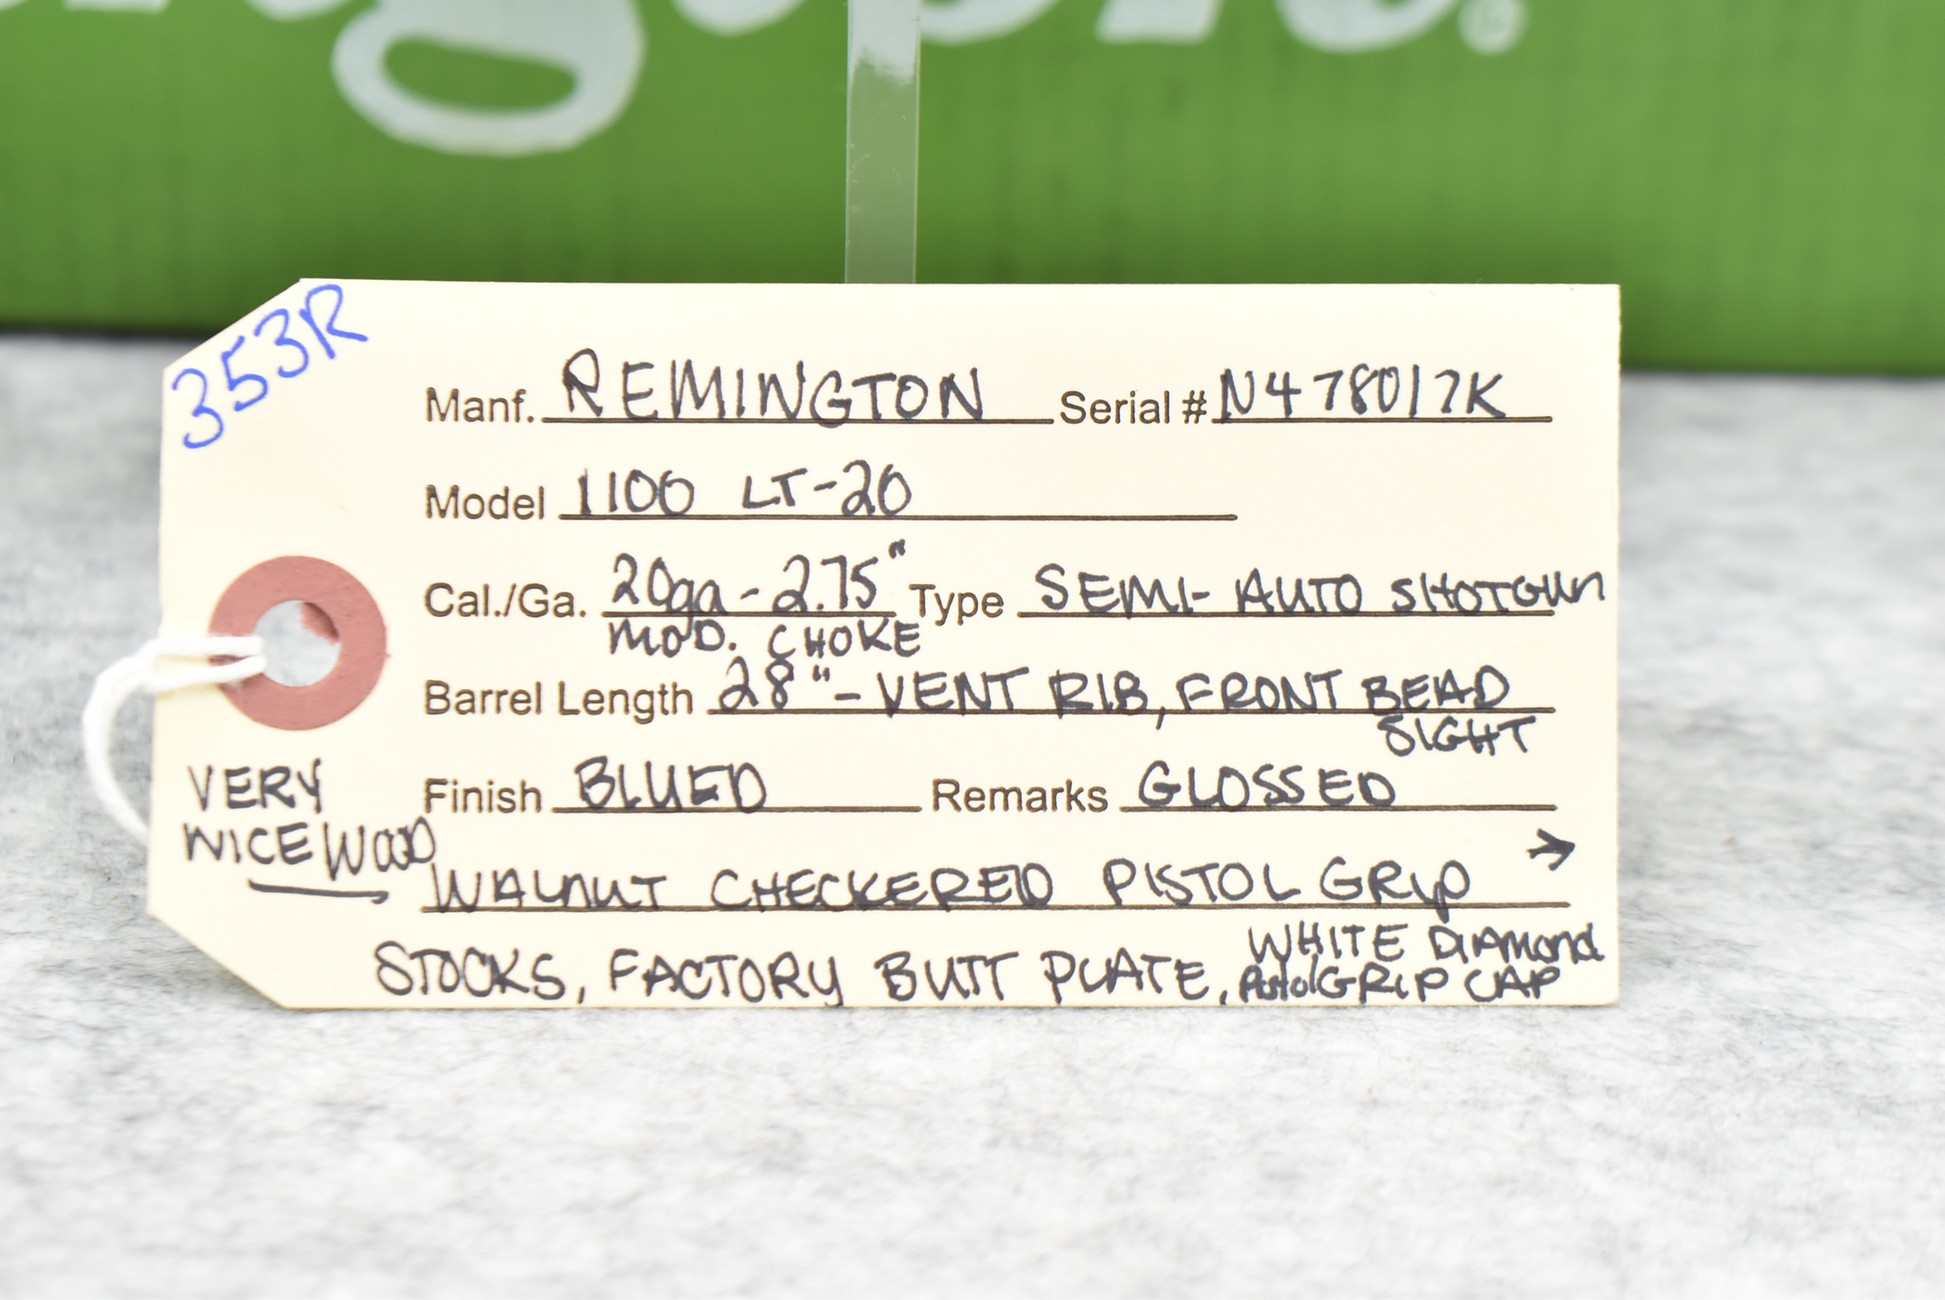 353R
Manf. REMINGTON Serial # N478017K
Model 1100 LT-20
Cal./Ga. 20ga - 2.75" Type SEMI-AUTO SHOTGUN
MOD. CHOKE
Barrel Length 28" - VENT RIB, FRONT BEAD
SIGHT
Finish BLUED Remarks GLOSSED
VERY
NICE WOOD
WALNUT CHECKERED PISTOL GRIP →
STOCKS, FACTORY BUTT PLATE, WHITE DIAMOND
Pistol GRIP CAP